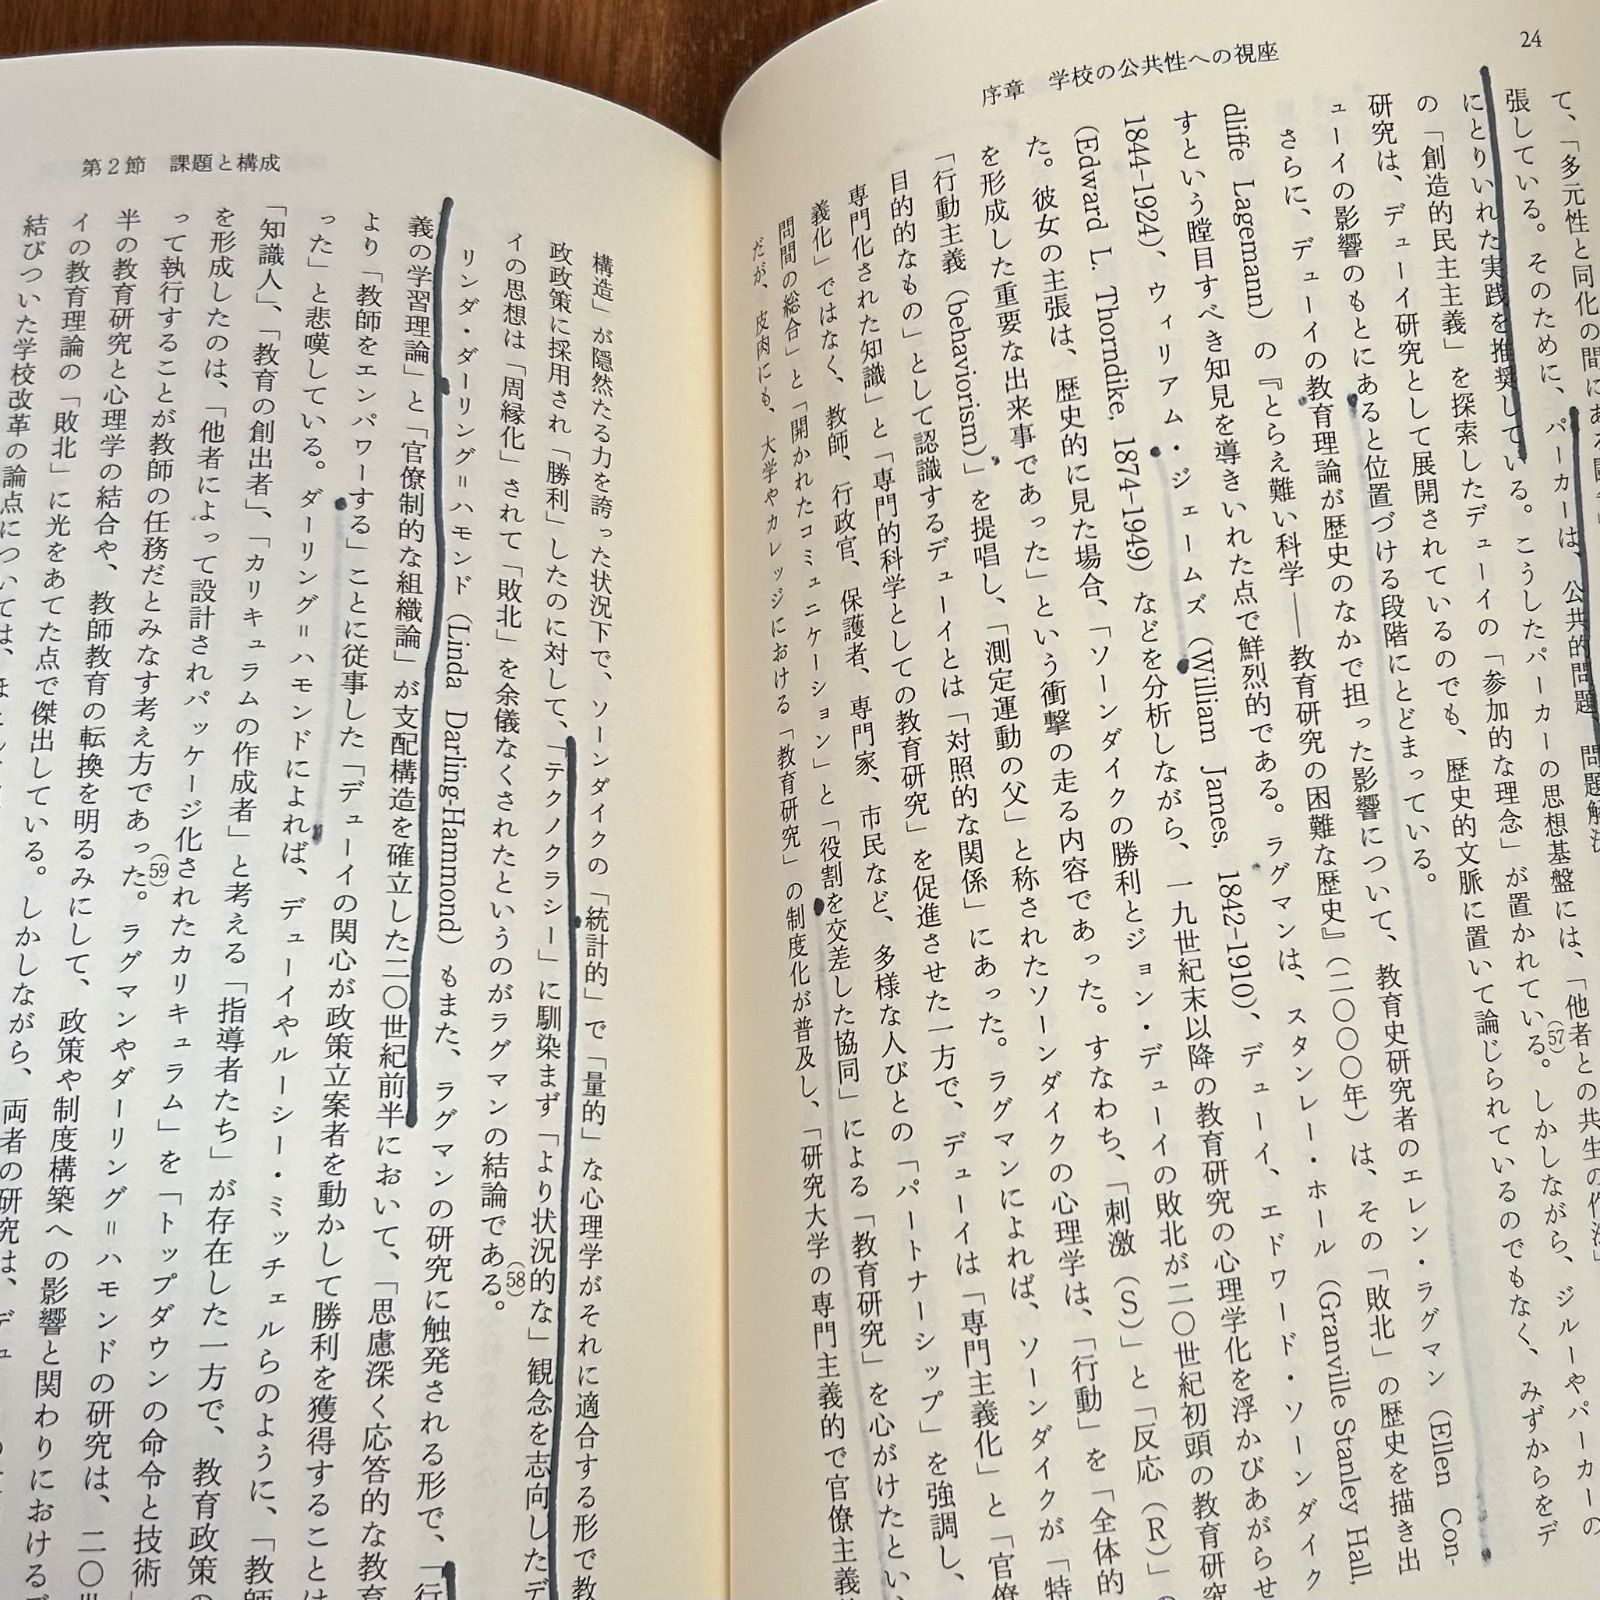 24
序章　学校の公共性への視座
て、「多元性と同化の間にある
張している。そのために、パーカーは、公共的問題、問題解決
にとりいれた実践を推奨している。こうしたパーカーの思想基盤には、「他者との共生の作法」
の「創造的民主主義」を探索したデューイの「参加的な理念」が置かれている。(57)しかしながら、ジルーやパーカーの
研究は、デューイ研究として展開されているのでも、歴史的文脈に置いて論じられているのでもなく、みずからをデ
ューイの影響のもとにあると位置づける段階にとどまっている。
さらに、デューイの教育理論が歴史のなかで担った影響について、教育史研究者のエレン・ラグマン（Ellen Con-
dliffe Lagemann）の『とらえ難い科学――教育研究の困難な歴史』（二〇〇〇年）は、その「敗北」の歴史を描き出
すという瞠目すべき知見を導きいれた点で鮮烈的である。ラグマンは、スタンレー・ホール（Granville Stanley Hall,
1844-1924）、ウィリアム・ジェームズ（William James, 1842-1910）、デューイ、エドワード・ソーンダイク
（Edward L. Thorndike, 1874-1949）などを分析しながら、一九世紀末以降の教育研究の心理学化を浮かびあがらせ
た。彼女の主張は、歴史的に見た場合、「ソーンダイクの勝利とジョン・デューイの敗北が二〇世紀初頭の教育研究
を形成した重要な出来事であった」という衝撃の走る内容であった。すなわち、「刺激（S）」と「反応（R）」の
「行動主義（behaviorism）」を提唱し、「測定運動の父」と称されたソーンダイクの心理学は、「行動」を「全体的
目的的なもの」として認識するデューイとは「対照的な関係」にあった。ラグマンによれば、ソーンダイクが「特
専門化された知識」と「専門的科学としての教育研究」を促進させた一方で、デューイは「専門主義化」と「官僚
義化」ではなく、教師、行政官、保護者、専門家、市民など、多様な人びとの「パートナーシップ」を強調し、
問間の総合」と「開かれたコミュニケーション」と「役割を交差した協同」による「教育研究」を心がけたとい
だが、皮肉にも、大学やカレッジにおける「教育研究」の制度化が普及し、「研究大学の専門主義的で官僚主義
第2節　課題と構成
構造」が隠然たる力を誇った状況下で、ソーンダイクの「統計的」で「量的」な心理学がそれに適合する形で教
政政策に採用され「勝利」したのに対して、「テクノクラシー」に馴染まず「より状況的な」観念を志向したデ
ィの思想は「周縁化」されて「敗北」を余儀なくされたというのがラグマンの結論である。(58)
リンダ・ダーリング＝ハモンド（Linda Darling-Hammond）もまた、ラグマンの研究に触発される形で、「行
義の学習理論」と「官僚制的な組織論」が支配構造を確立した二〇世紀前半において、「思慮深く応答的な教育
より「教師をエンパワーする」ことに従事した「デューイの関心が政策立案者を動かして勝利を獲得することは
った」と悲嘆している。ダーリング＝ハモンドによれば、デューイやルーシー・ミッチェルらのように、「教師
「知識人」、「教育の創出者」、「カリキュラムの作成者」と考える「指導者たち」が存在した一方で、教育政策の
を形成したのは、「他者によって設計されパッケージ化されたカリキュラム」を「トップダウンの命令と技術」
って執行することが教師の任務だとみなす考え方であった。(59)ラグマンやダーリング＝ハモンドの研究は、二〇世
半の教育研究と心理学の結合や、教師教育の転換を明るみにして、政策や制度構築への影響と関わりにおけるデ
ィの教育理論の「敗北」に光をあてた点で傑出している。しかしながら、両者の研究は、デュ
結びついた学校改革の論点については、ほとんど